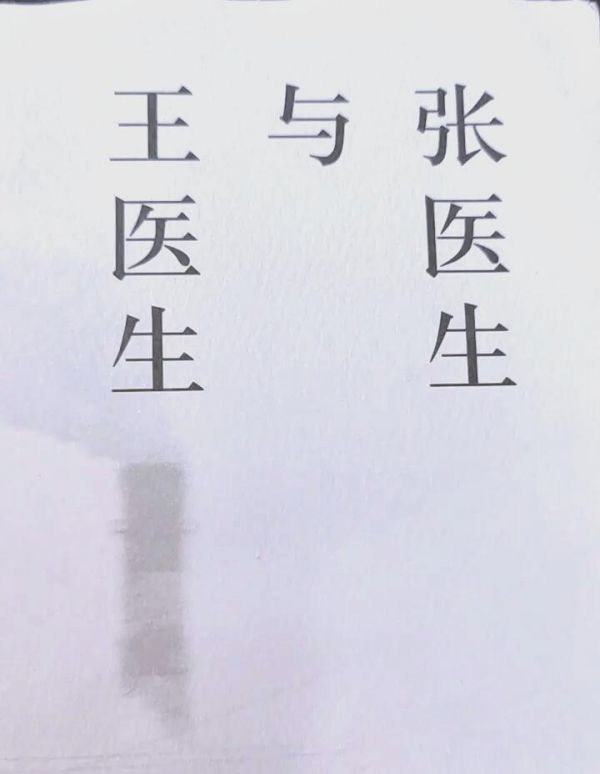 张医生
与
王医生